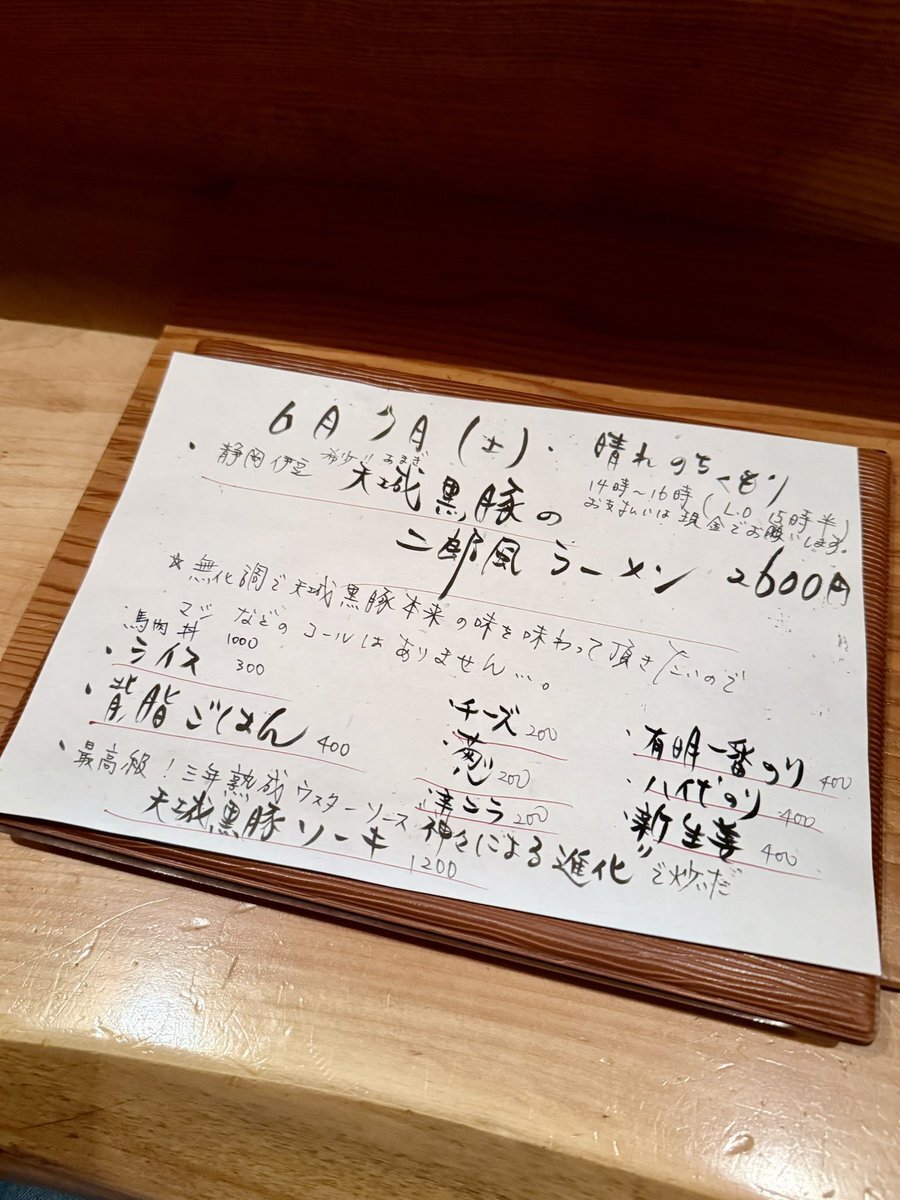 6月7日(土)・晴れのちくもり
14時〜16時(L.O 15時半)
お支払いは現金でお願いします。
・静岡伊豆 天城黒豚の
あまぎ
二郎風ラーメン 2600円
☆無化調で天城黒豚本来の味を味わって頂きたいので
マシなどのコールはありません…。
馬肉丼 1000
・ライス 300
・背脂ごはん 400
・チーズ 200
・葱 200
200
・有明一番のり 400
のり 400
・新生姜 400
・最高級!三年熟成ウスターソース"神々による進化"で炊いだ
天城黒豚ソーキ 1200